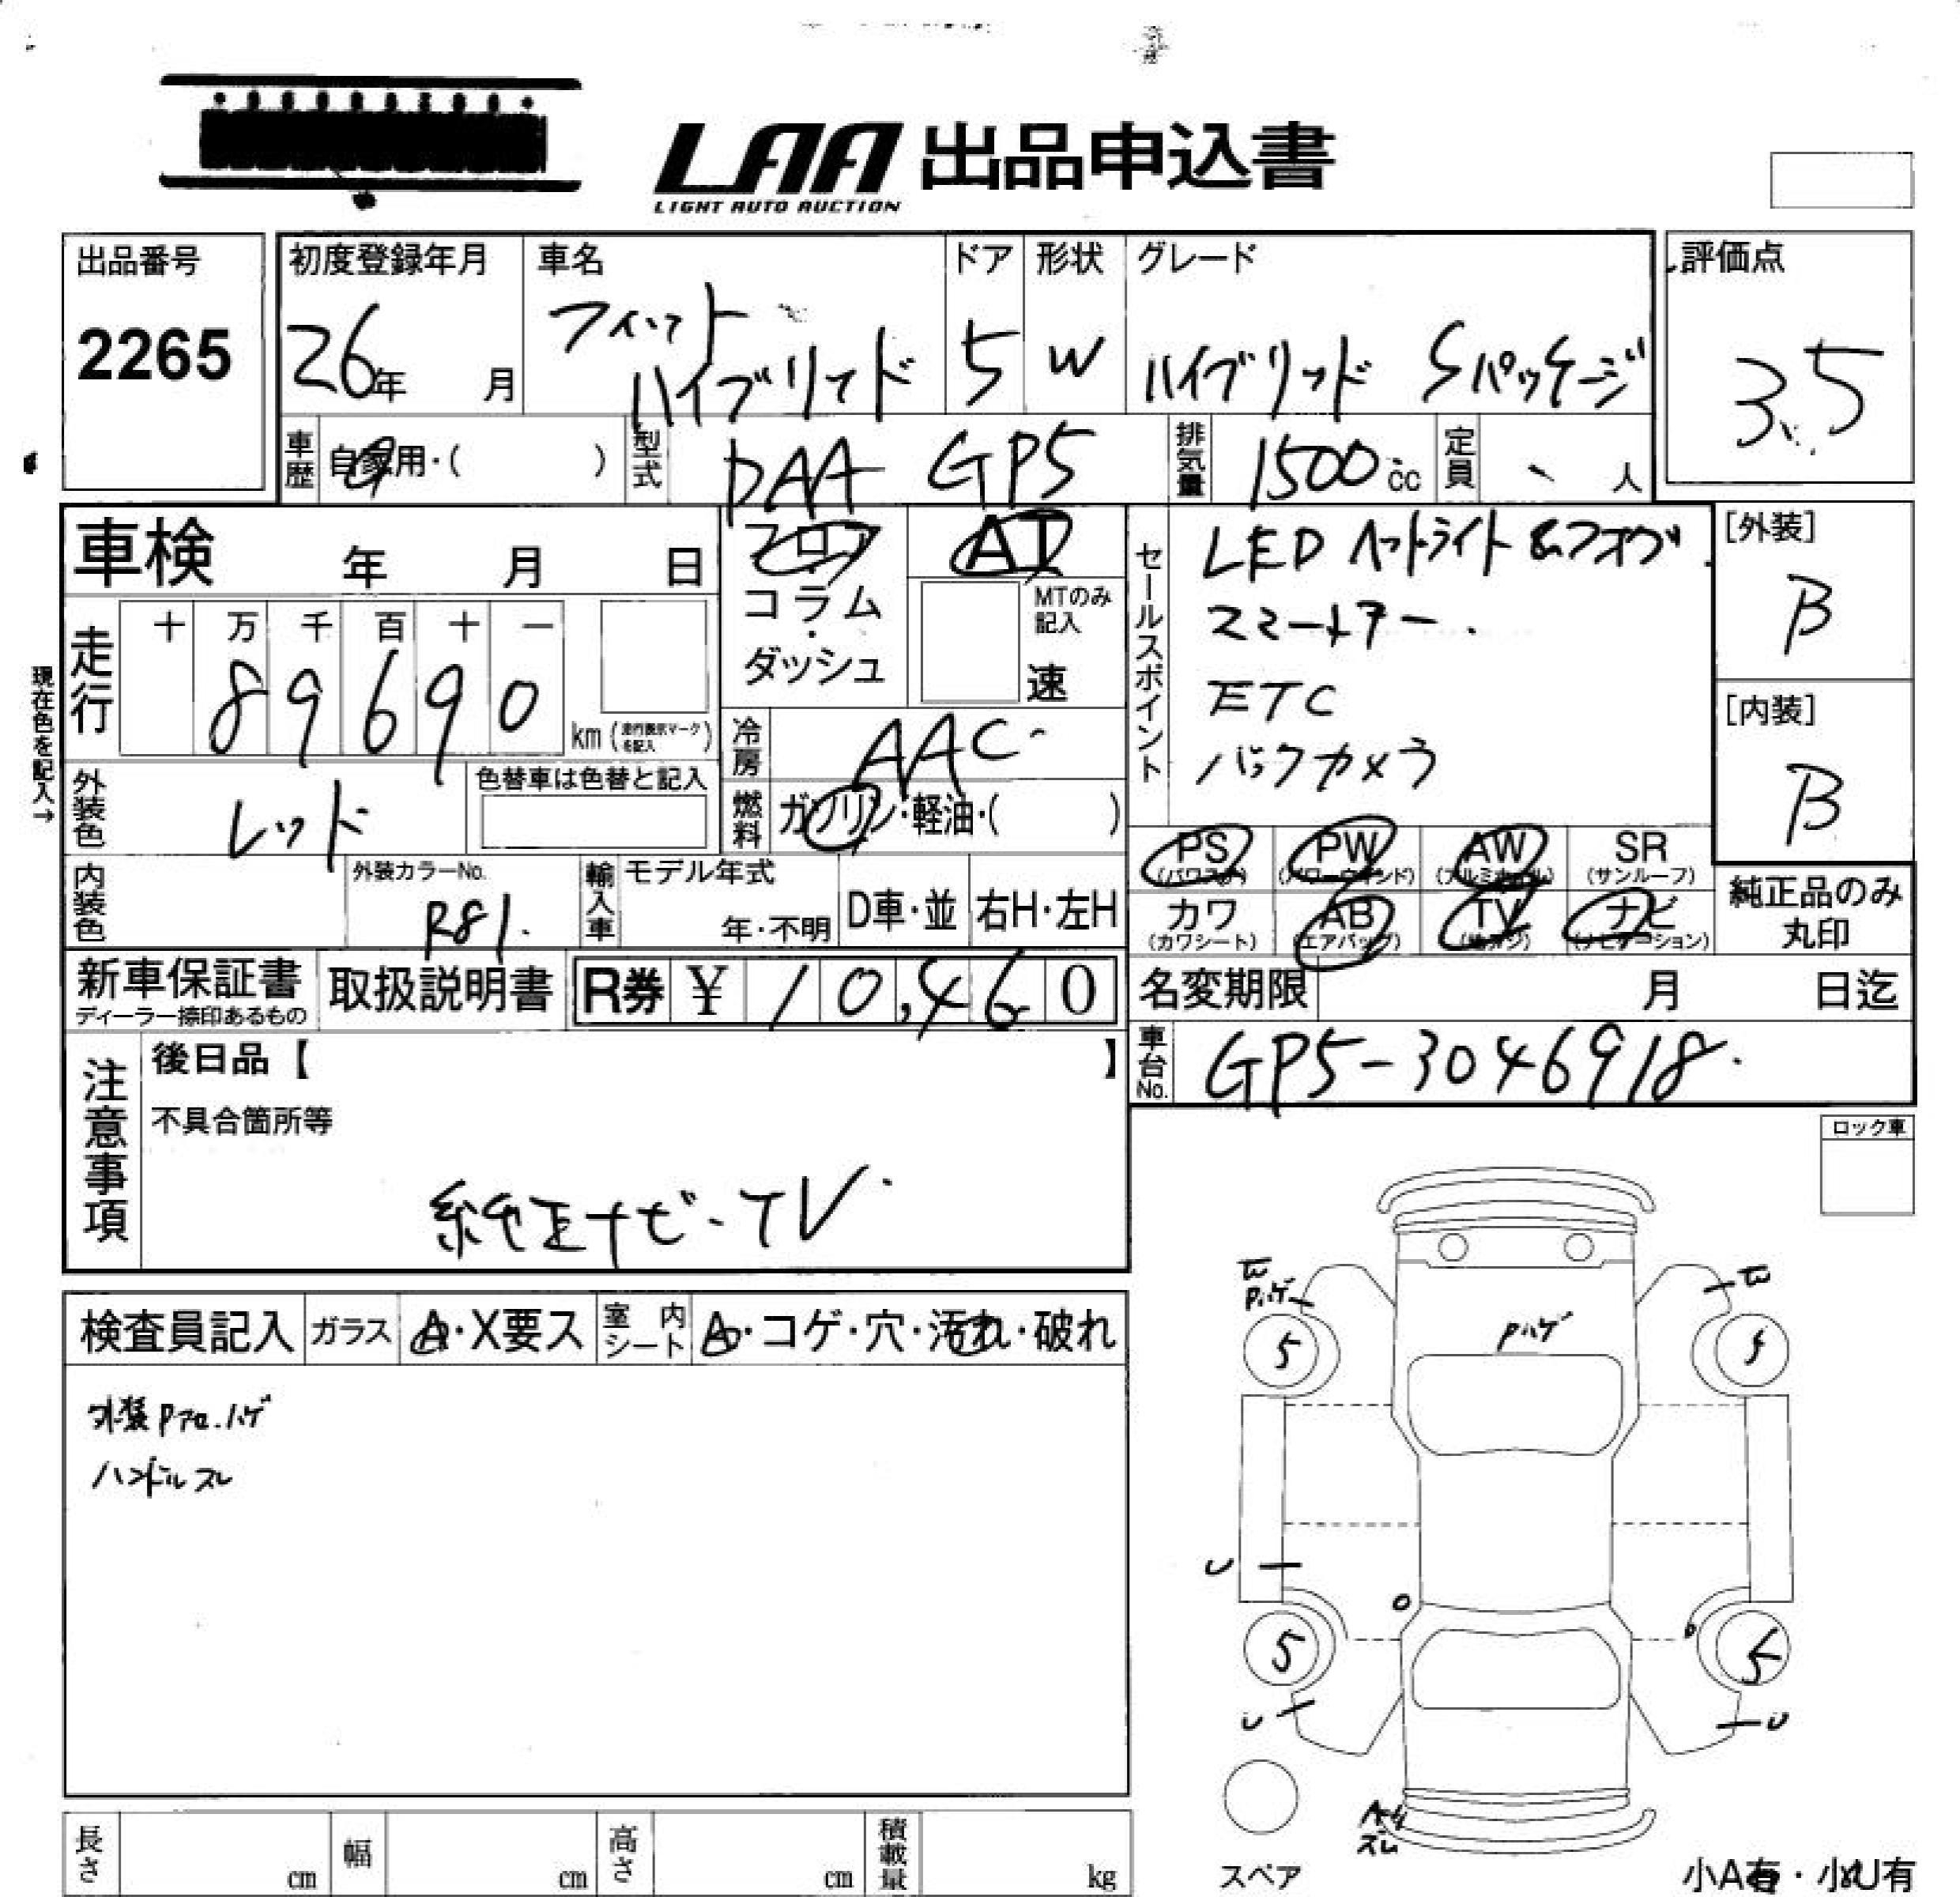 LAA 出品申込書
LIGHT AUTO AUCTION
出品番号
2265
初度登録年月
26年 月
車名
フィット
ハイブリッド
ドア
5
形状
W
グレード
ハイブリッド Sパッケージ
評価点
3.5
車歴
自家用・( )
型式
DAA GP5
排気量
1500 cc
定員
人
車検 年 月 日
フロア
コラム
・
ダッシュ
AT
MTのみ
記入
速
走行
十 万 千 百 十 一
8 9 6 9 0
km (走行表示マークを記入)
現在色を記入→
冷房
AAC
燃料
ガソリン・軽油・( )
外装色
レッド
色替車は色替と記入
内装色
外装カラーNo.
R81.
輸入車
モデル年式
年・不明
D車・並
右H・左H
セールスポイント
LED ヘッドライト&フォグ
スマートキー.
ETC
バックカメラ
[外装]
B
[内装]
B
PS
(パワステ)
PW
(パワーウインド)
AW
(アルミホイル)
SR
(サンルーフ)
カワ
(カワシート)
AB
(エアバッグ)
TV
ナビ
(ナビゲーション)
純正品のみ
丸印
新車保証書
ディーラー捺印あるもの
取扱説明書
R券 ¥ 10,460
名変期限 月 日迄
車台No.
GP5-3046918.
注意事項
後日品【 】
不具合箇所等
純正ナビ・TV.
ロック車
検査員記入
ガラス
A・X要ス
室内
シート
A・コゲ・穴・汚れ・破れ
外装Pフロ.ハゲ
ハンドルスレ
Pハゲ
Pハゲ
5
5
5
5
U
U
U
スペア
小A有・小U有
長さ cm
幅 cm
高さ cm
積載量 kg